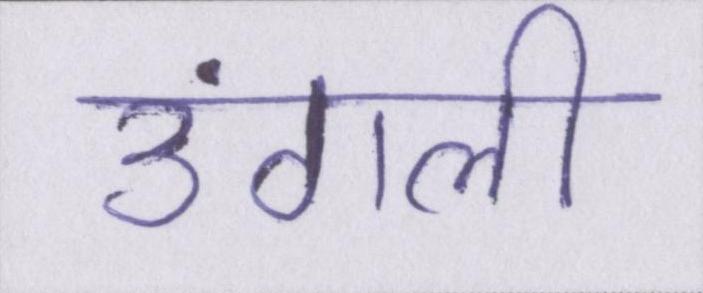 उंगली